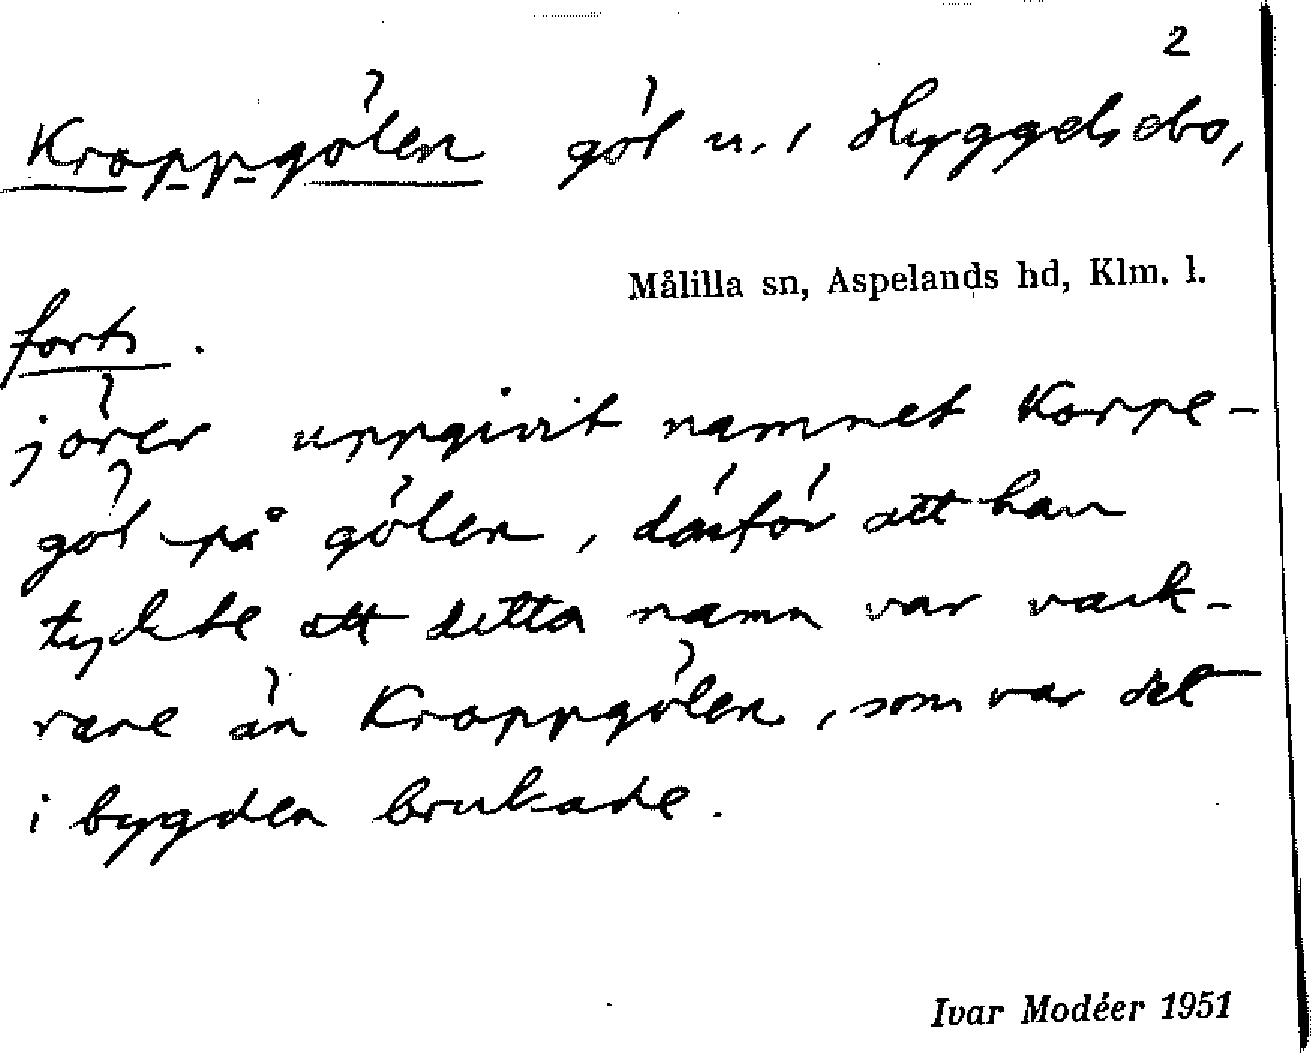 2
Kroppgölen göl u. i Hyggelsebo,
Målilla sn, Aspelands hd, Klm. l.
forts.
jörer uppgivit namnet Korpe-
göl på gölen, därför att han
tyckte att detta namn var vack-
rare än Kroppgölen, som var det
i bygden brukade.
Ivar Modéer 1951